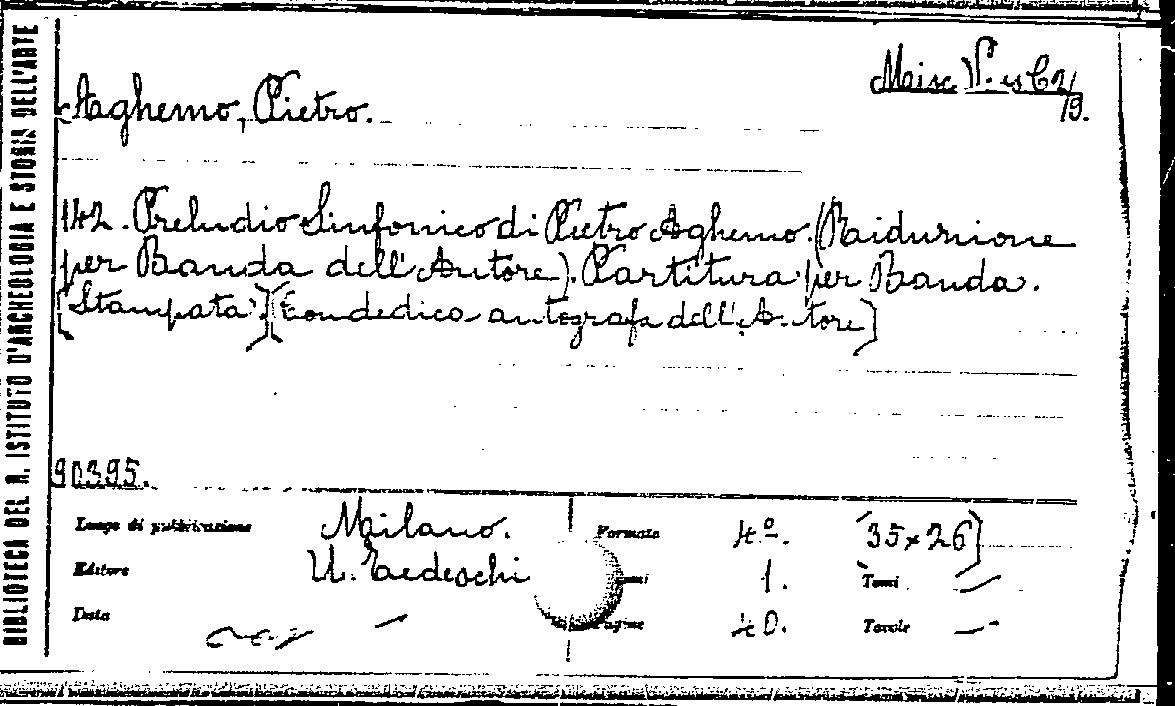 BIBLIOTECA DEL R. ISTITUTO D'ARCHEOLOGIA E STORIA DELL'ARTE
Misc
/9.
Aghemo, Pietro.
142. Preludio Sinfonico di Pietro Aghemo. (Raidunione
per Banda dell'Autore). Partitura per Banda.
[Stampata] [Con dedica autografa dell'Autore]
90395.
Luogo di pubblicazione Milano. Formato 4º. (35×26)
Editore U. Tedeschi 1. Tomi —
Data — Pagine 40. Tavole —